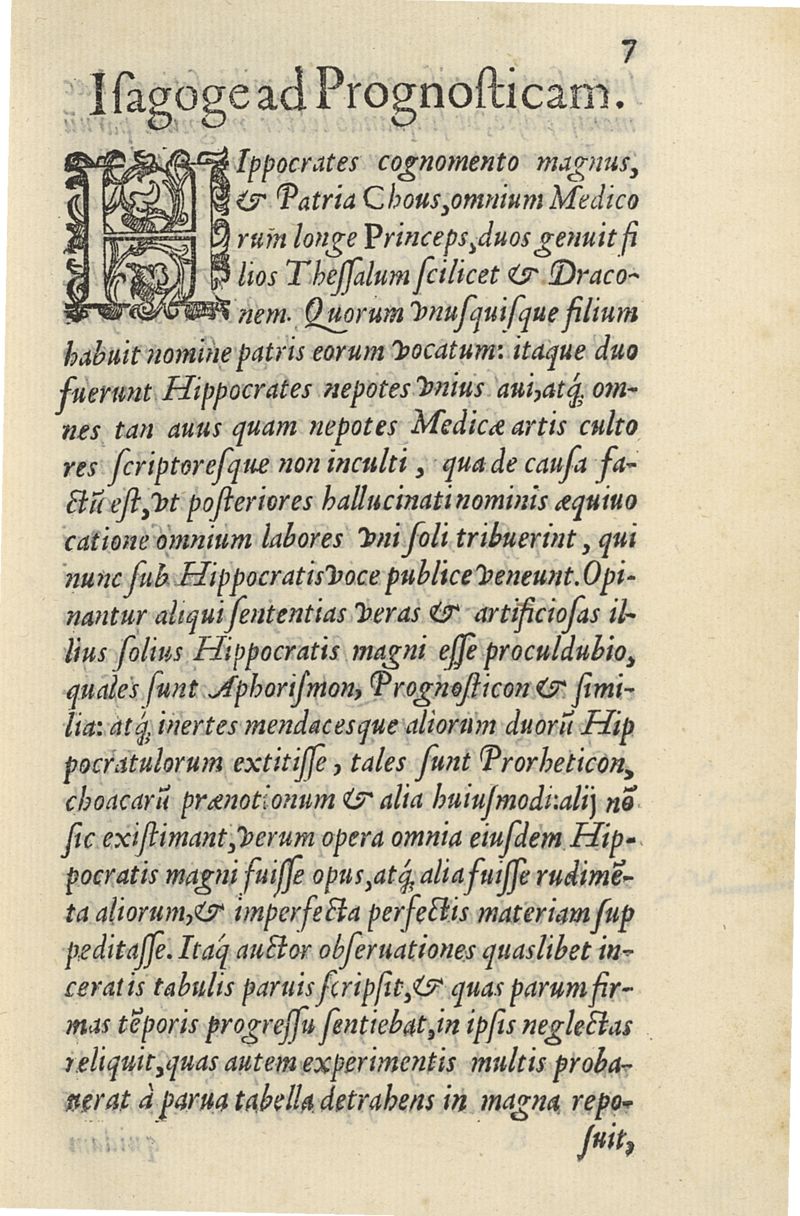 7
Iſagoge ad Prognoſticam.
HIppocrates cognomento magnus,
& Patria Chous, omnium Medico
rum longe Princeps, duos genuit fi
lios Theſſalum ſcilicet & Draco-
nem. Quorum vnuſquiſque filium
habuit nomine patris eorum vocatum: itaque duo
fuerunt Hippocrates nepotes vnius aui, atq́; om-
nes tan auus quam nepotes Medicæ artis culto
res ſcriptoreſque non inculti, qua de cauſa fa-
ctũ eſt, vt poſteriores hallucinati nominis æquiuo
catione omnium labores vni ſoli tribuerint, qui
nunc ſub Hippocratis voce publice veneunt. Opi-
nantur aliqui ſententias veras & artificioſas il-
lius ſolius Hippocratis magni eſſe proculdubio,
quales ſunt Aphoriſmon, Prognoſticon & ſimi-
lia: atq́; inertes mendacesque aliorum duorũ Hip
pocratulorum extitiſſe, tales ſunt Prorheticon,
choacarũ prænotionum & alia huiuſmodi: alij nõ
ſic exiſtimant, verum opera omnia eiuſdem Hip-
pocratis magni fuiſſe opus, atq́; alia fuiſſe rudimẽ-
ta aliorum, & imperfecta perfectis materiam ſup
peditaſſe. Itaq́ auctor obſeruationes quaslibet in-
ceratis tabulis paruis ſcripſit, & quas parum fir-
mas tẽporis progreſſu ſentiebat, in ipſis neglectas
reliquit, quas autem experimentis multis proba-
uerat à parua tabella detrahens in magna repo-
ſuit,